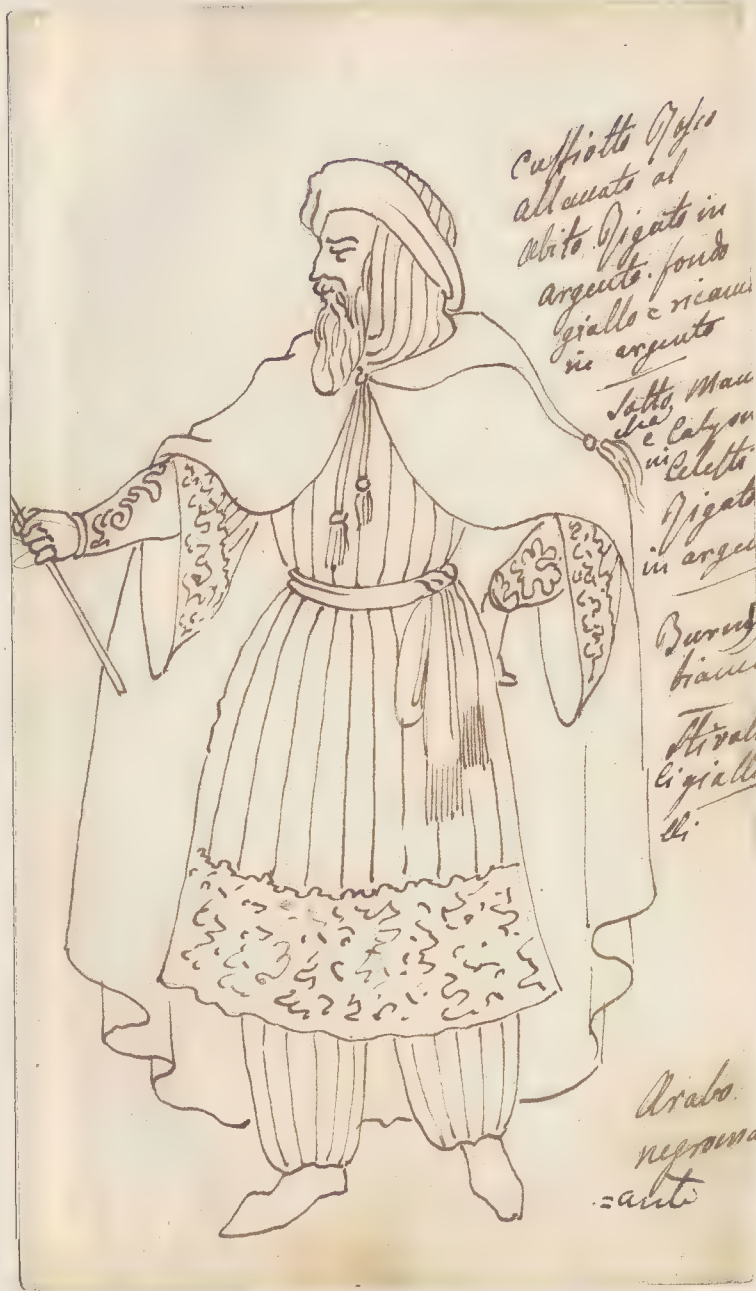 Cuffiotto Rosso
allacciato al
abito. Rigato in
argento. fondo
giallo e ricami
in argento
Sotto Mani
che e Calzon
in Celesti
Rigato
in argen
Burnu
bianc
Stivale
li gialle
lli
Arabo
negroma
=anti